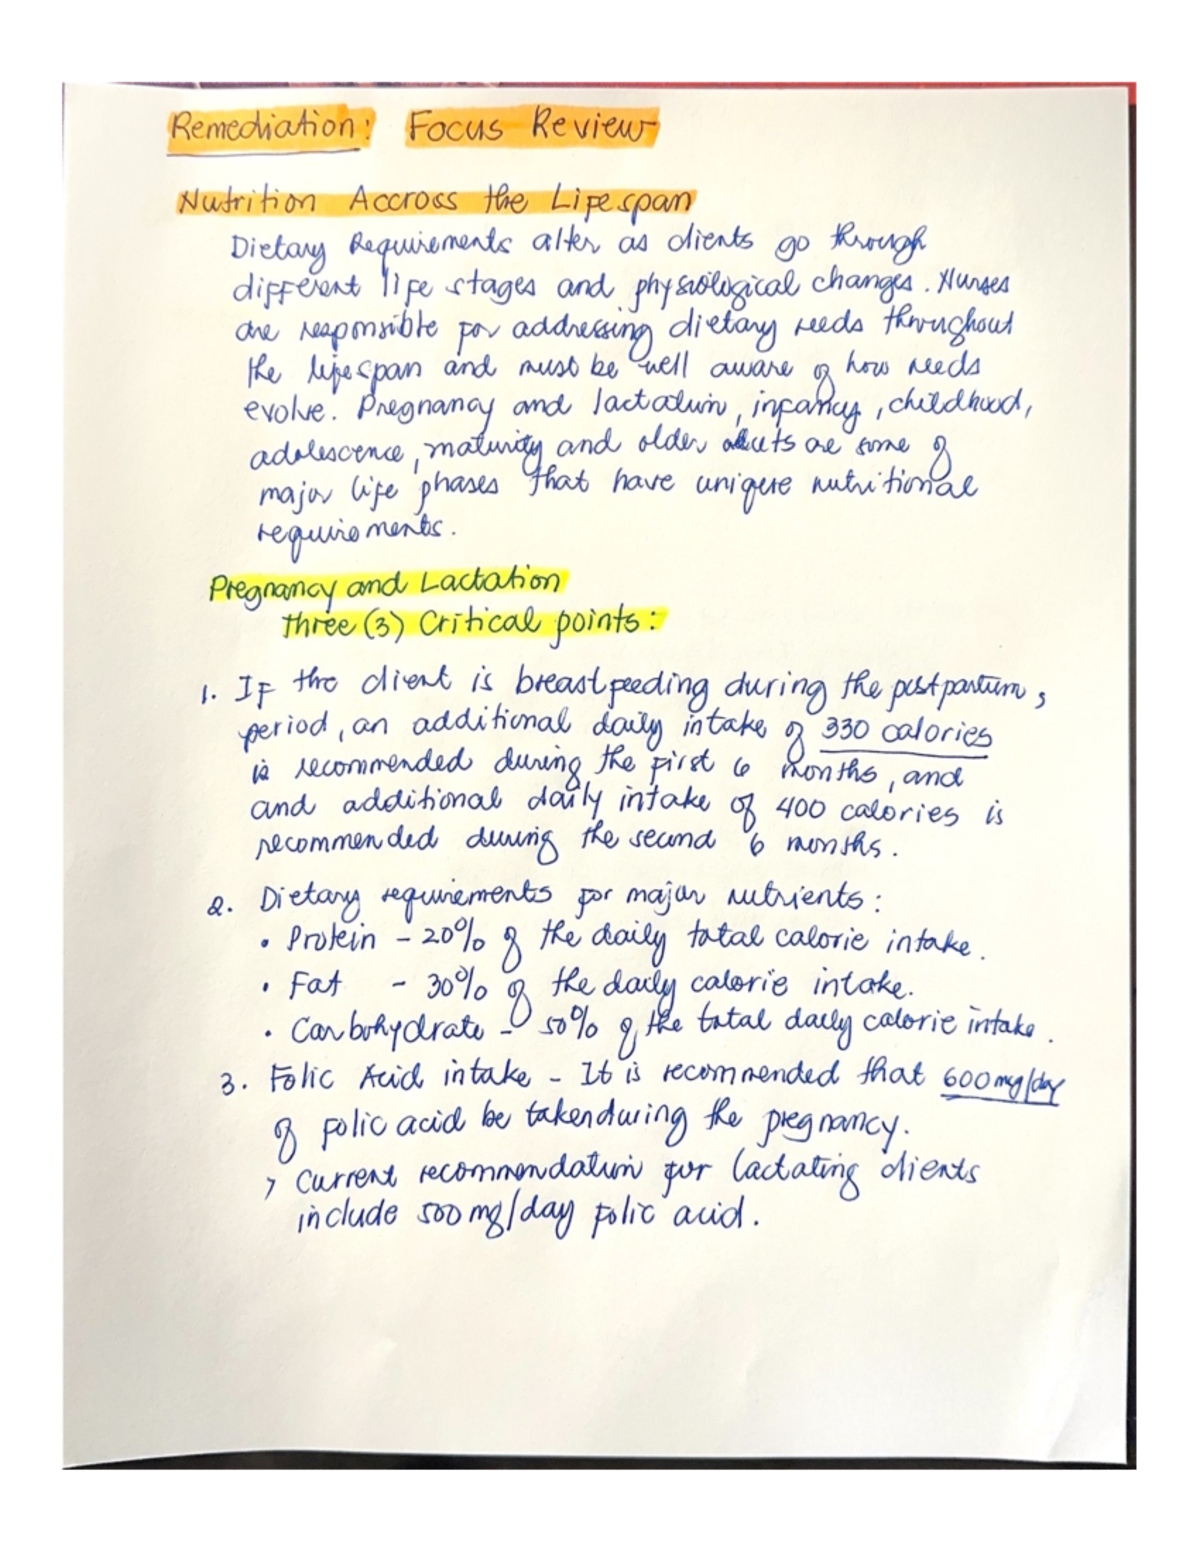 Remediation: Focus Review
Nutrition Accross the Lifespan
Dietary Requirements alter as clients go through
different life stages and physiological changes. Nurses
are responsible for addressing dietary needs throughout
the lifespan and must be well aware of how needs
evolve. Pregnancy and lactation, infancy, childhood,
adolescence, maturity and older adults are some of
major life phases that have unique nutritional
requirements.
Pregnancy and Lactation
three (3) Critical points:
1. If the client is breastfeeding during the postpartum,
period, an additional daily intake of 330 calories
is recommended during the first 6 months, and
and additional daily intake of 400 calories is
recommended during the second 6 months.
2. Dietary requirements for major nutrients:
• Protein - 20% of the daily total calorie intake.
• Fat - 30% of the daily calorie intake.
• Carbohydrate - 50% of the total daily calorie intake.
3. Folic Acid intake - It is recommended that 600mg/day
of folic acid be taken during the pregnancy.
> Current recommendation for lactating clients
include 500 mg/day folic acid.